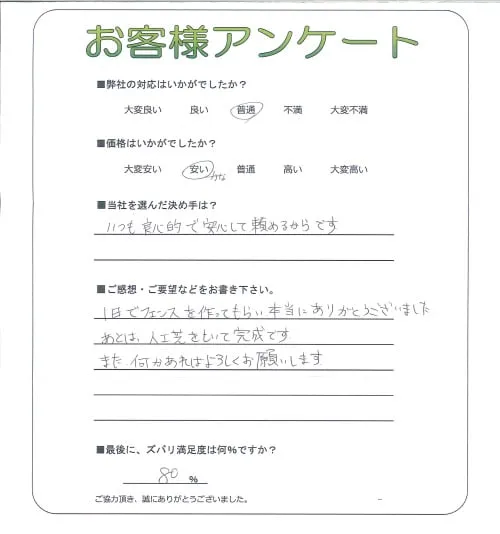 お客様アンケート
■弊社の対応はいかがでしたか？
大変良い 良い 普通 不満 大変不満
■価格はいかがでしたか？
大変安い 安い かな 普通 高い 大変高い
■当社を選んだ決め手は？
いつも良心的で安心して頼めるからです
■ご感想・ご要望などをお書き下さい。
1日でフェンスを作ってもらい本当にありがとうございました
あとは、人工芝をしいて完成です
また何かあればよろしくお願いします
■最後に、ズバリ満足度は何%ですか？
80 %
ご協力頂き、誠にありがとうございました。